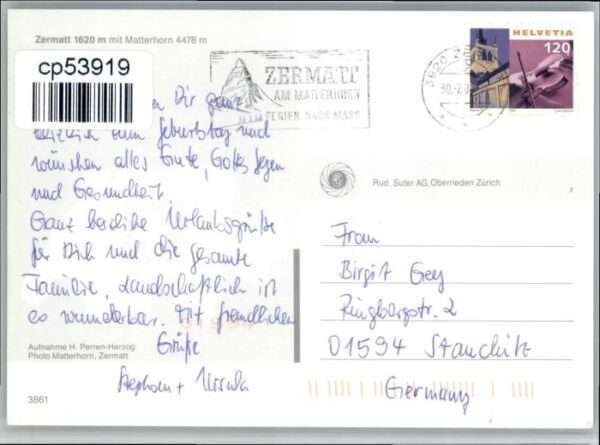 Zermatt 1620 m mit Matterhorn 4478 m
cp53919
ZERMATT
AM MATTERHORN
FERIEN NACH MASS
HELVETIA
120
Dir ganz
herzlich zum Geburtstag und
wünschen alles Gute, Gottes Segen
und Gesundheit
Ganz herzliche Urlaubsgrüße
für Dich und die gesamte
Familie, Landschaftlich ist
es wunderbar. Mit freundlichen
Grüße
Stephan + Ursula
Aufnahme H. Perren-Herzog
Photo Matterhorn, Zermatt
3861
Rud. Suter AG, Oberrieden Zürich
Fram
Birgit Gey
Ringbergstr. 2
01594 Stauchitz
Germany